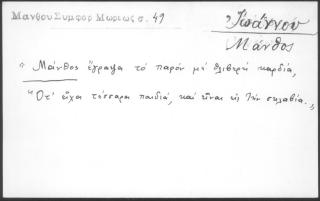 Μανθου Συμφορ Μωρεως σ. 49
Ἰωάννου
Μάνθος
"Μάνθος ἔγραψα τό παρόν μέ θλιβερή καρδία,
"Οτ' εἶχα τέσσαρα παιδιά, καί εἶναι εἰς τήν σκλαβία.,